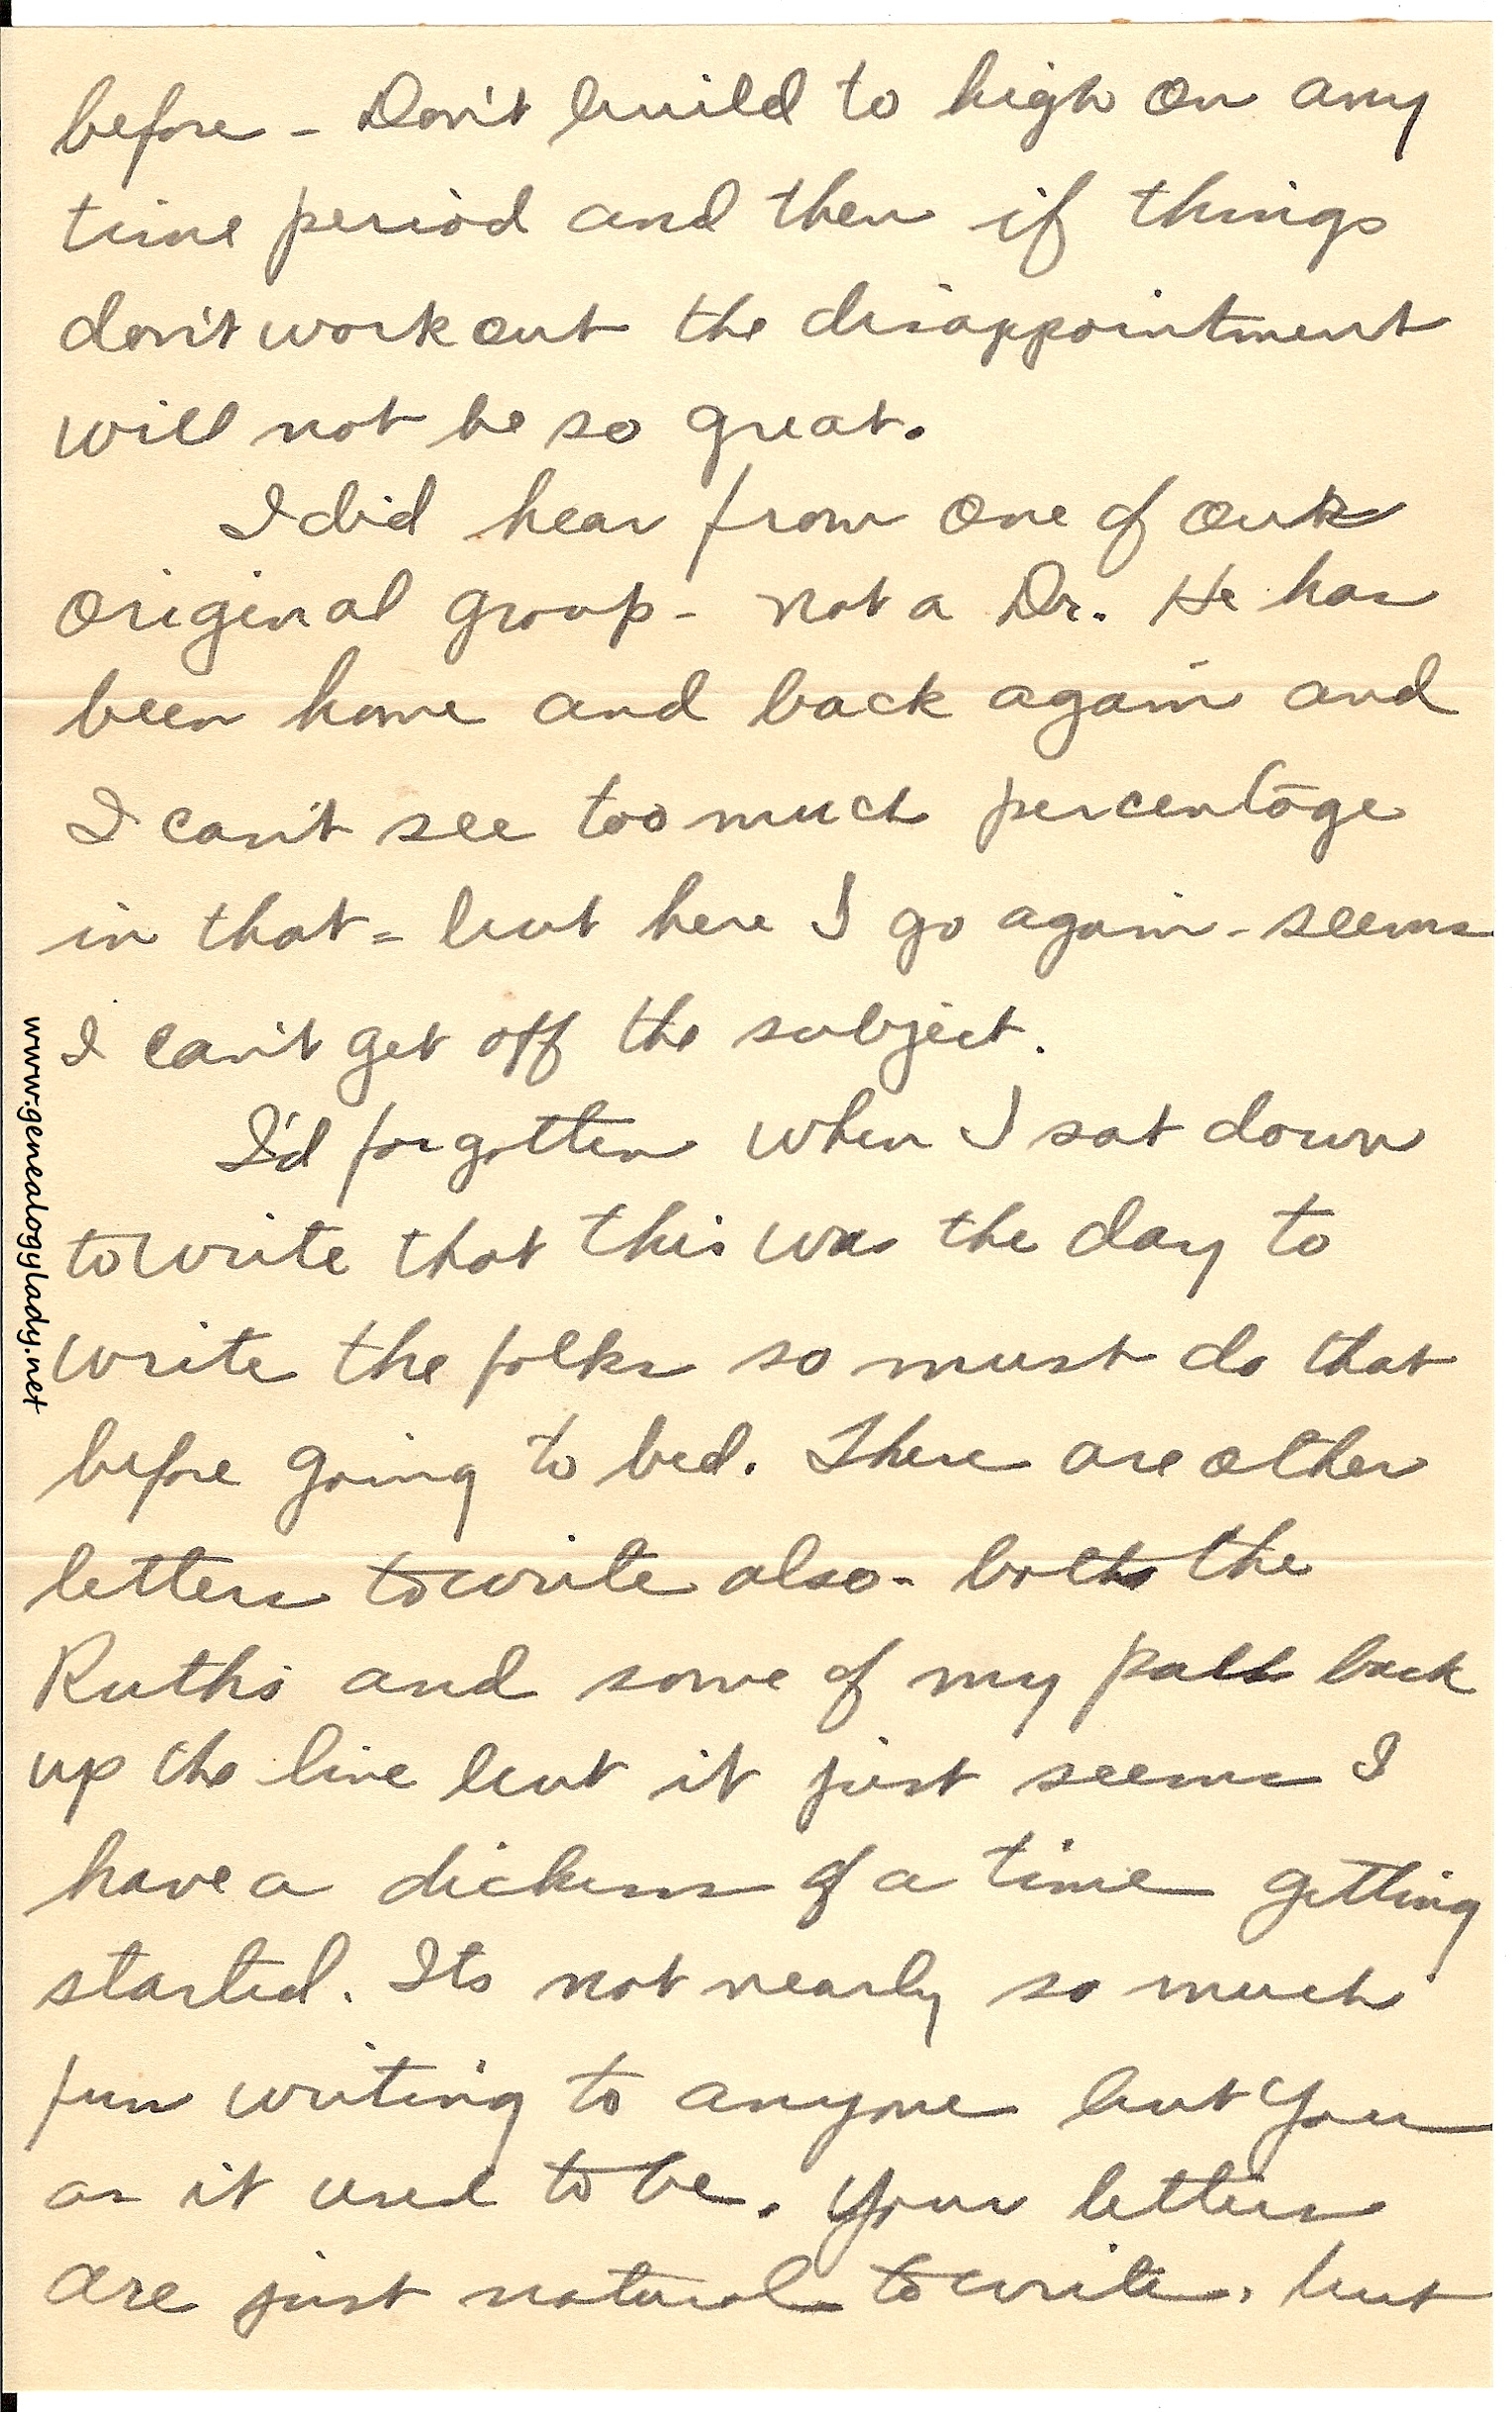 before - Don't build to high on any
time period and then if things
don't work out the disappointment
will not be so great.
I did hear from one of our
original group - not a Dr. He has
been home and back again and
I can't see too much percentage
in that - but here I go again - seems
I can't get off the subject.
I'd forgotten when I sat down
to write that this was the day to
write the folks so must do that
before going to bed. There are other
letters to write also - both the
Ruths and some of my pals back
up the line but it just seems I
have a dickens of a time getting
started. Its not nearly so much
fun writing to anyone but you
as it used to be. Your letters
are just natural to write, but
www.genealogylady.net